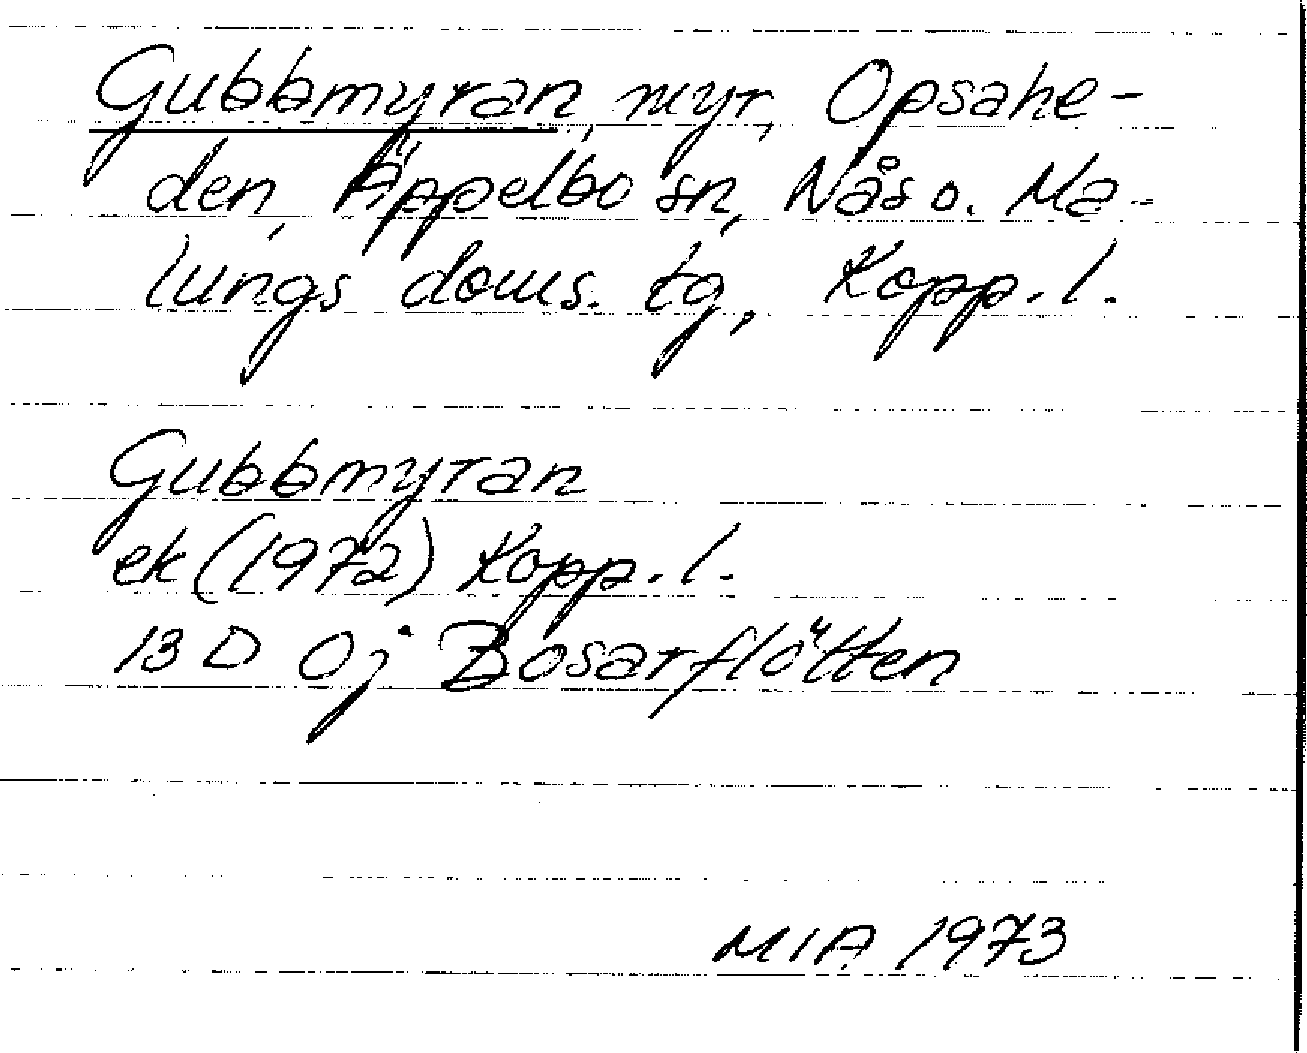 Gubbmyran, myr, Opsahe-
den, Äppelbo sn, Nås o. Ma-
lungs doms. tg, Kopp. l.
Gubbmyran
ek (1972) Kopp. l.
13 D 0j Bosarflötten
MIA 1973